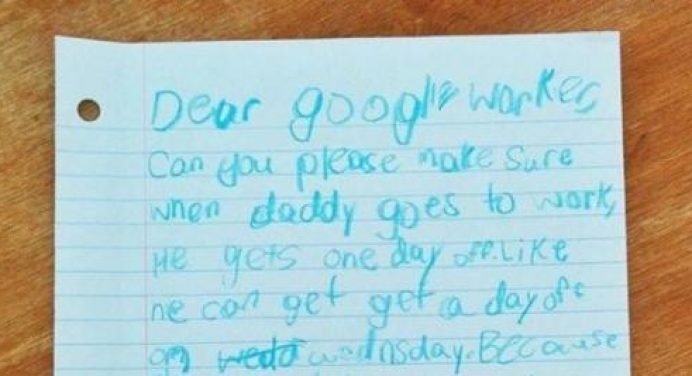 Dear google worker,
Can you please make sure
when daddy goes to work,
He gets one day off. Like
he can get get a day off
on wednsday. Because